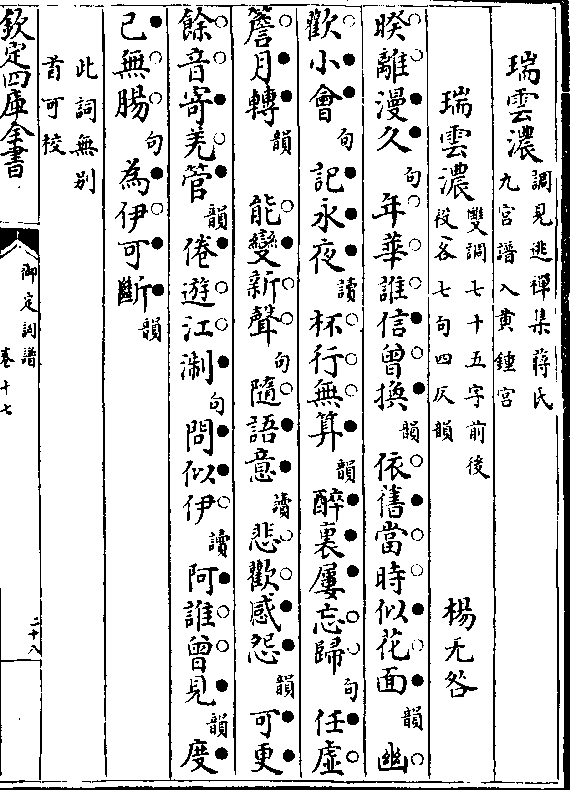 瑞雲濃調見逃禪集蔣氏九宮譜入黄鍾宮
瑞雲濃雙調七十五字前後段各七句四仄韻 楊无咎
暌離漫久句年華誰信曾換韻依舊當時似花面韻幽
歡小會句記永夜讀杯行無算韻醉裏屢忘歸句任虛
簷月轉韻 能變新聲句隨語意讀悲歡感怨韻可更
餘音寄羌管韻倦遊江淛句問似伊讀阿誰曾見韻度
已無腸句為伊可斷韻
此詞無别首可校
欽定四庫全書
御定詞譜
卷十七
二十八